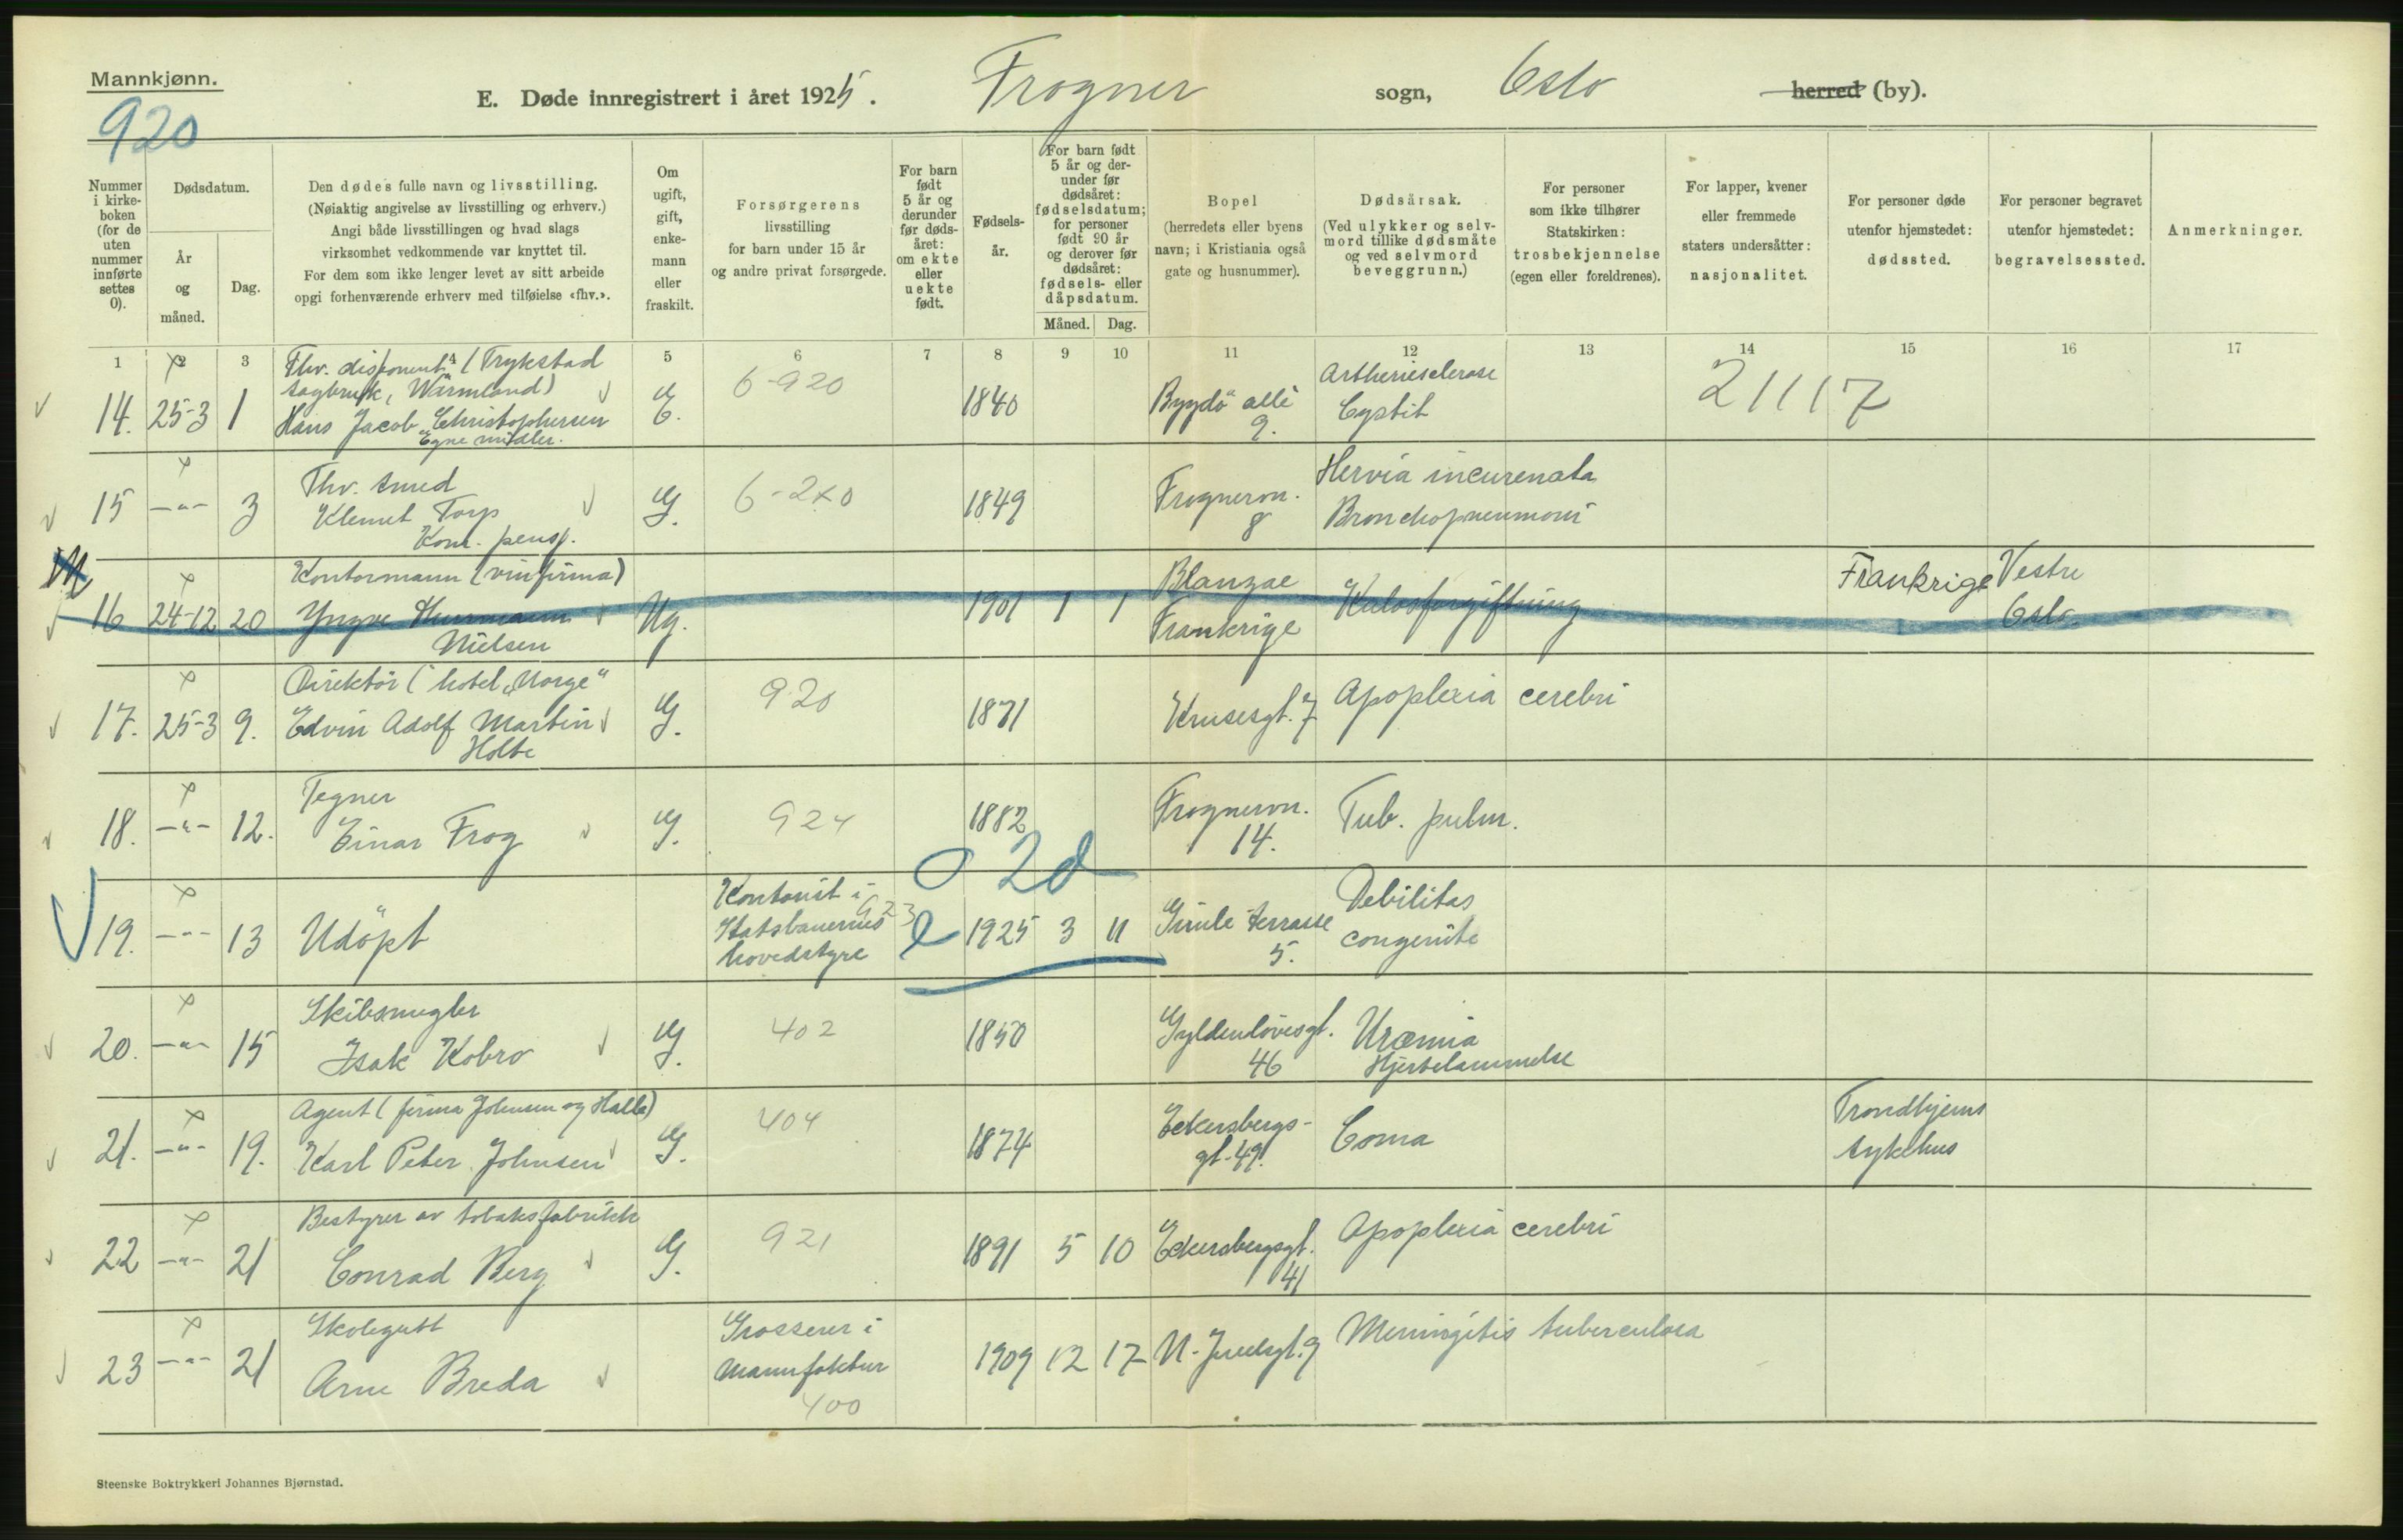 Mannkjønn.
920
E. Døde innregistrert i året 1925. Frogner sogn, Oslo herred (by).
Nummer i kirkeboken (for de uten nummer innførte settes 0).
Dødsdatum.
År og måned.
Dag.
Den dødes fulle navn og livsstilling.
(Nøiaktig angivelse av livsstilling og erhverv.)
Angi både livsstillingen og hvad slags
virksomhet vedkommende var knyttet til.
For dem som ikke lenger levet av sitt arbeide
opgi forhenværende erhverv med tilføielse «fhv.».
Om ugift, gift, enkemann eller fraskilt.
Forsørgerens
livsstilling
for barn under 15 år
og andre privat forsørgede.
For barn født 5 år og derunder før dødsåret: om ekte eller uekte født.
Fødselsår.
For barn født 5 år og derunder før dødsåret: fødselsdatum; for personer født 90 år og derover før dødsåret: fødsels- eller dåpsdatum.
Måned. Dag.
Bopel
(herredets eller byens
navn; i Kristiania også
gate og husnummer).
Dødsårsak.
(Ved ulykker og selvmord tillike dødsmåte og ved selvmord beveggrunn.)
For personer
som ikke tilhører
Statskirken:
trosbekjennelse
(egen eller foreldrenes).
For lapper, kvener
eller fremmede
staters undersåtter:
nasjonalitet.
For personer døde
utenfor hjemstedet:
dødssted.
For personer begravet
utenfor hjemstedet:
begravelsessted.
Anmerkninger.
1 2 3 5 6 7 8 9 10 11 12 13 14 15 16 17
Fhv. disponent (Trykstad
sagbruk, Wärmland)
14. 25-3 1 Hans Jacob Christophersen E. 6-920 1840 Bygdö allé 9. Artheriesclerose Cystit 21117
Egne midler.
Fhv. smed
15 -"- 3 Klemet Torp G. 6-2x0 1849 Frognervn. 8 Hernia incarcerata Bronchopneumoni
Kom. pensj.
Kontormann (vinfirma)
16 24-12 20 Yngve Hermann Nielsen Ug. 1901 1 1 Blanzac Frankrige Kulosforgiftning Frankrige Vestre Oslo
Direktör (i hotel „Norge"
17. 25-3 9. Edvin Adolf Martin Holte G. 920 1871 Krusesgt. 7 Apoplexia cerebri
Tegner
18. -"- 12. Einar Frog G. 924 1882 Frognervn. 14. Tub. pulm.
0 2d
19. -"- 13 Udöpt Kontorist i Statsbanernes hovedstyre 923 e 1925 3 11 Gimle terrasse 5. Debilitas congenita
Skibsmegler
20. -"- 15 Isak Kobro G. 402 1850 Gyldenlövesgt. 46 Uræmia Hjertelammelse
Agent (firma Johnsen og Halle)
21. -"- 19. Karl Peter Johnsen G. 404 1874 Eckersbergsgt. 49. Coma Trondhjems sykehus
Bestyrer av tobaksfabrikk
22 -"- 21 Conrad Berg G. 921 1891 5 10 Eckersbergsgt. 41 Apoplexia cerebri
Skolegutt
23 -"- 21 Arne Breda Grosserer i manufaktur 400 1909 12 17 N. Juelsgt. 9 Meningitis tuberculosa
Steenske Boktrykkeri Johannes Bjørnstad.